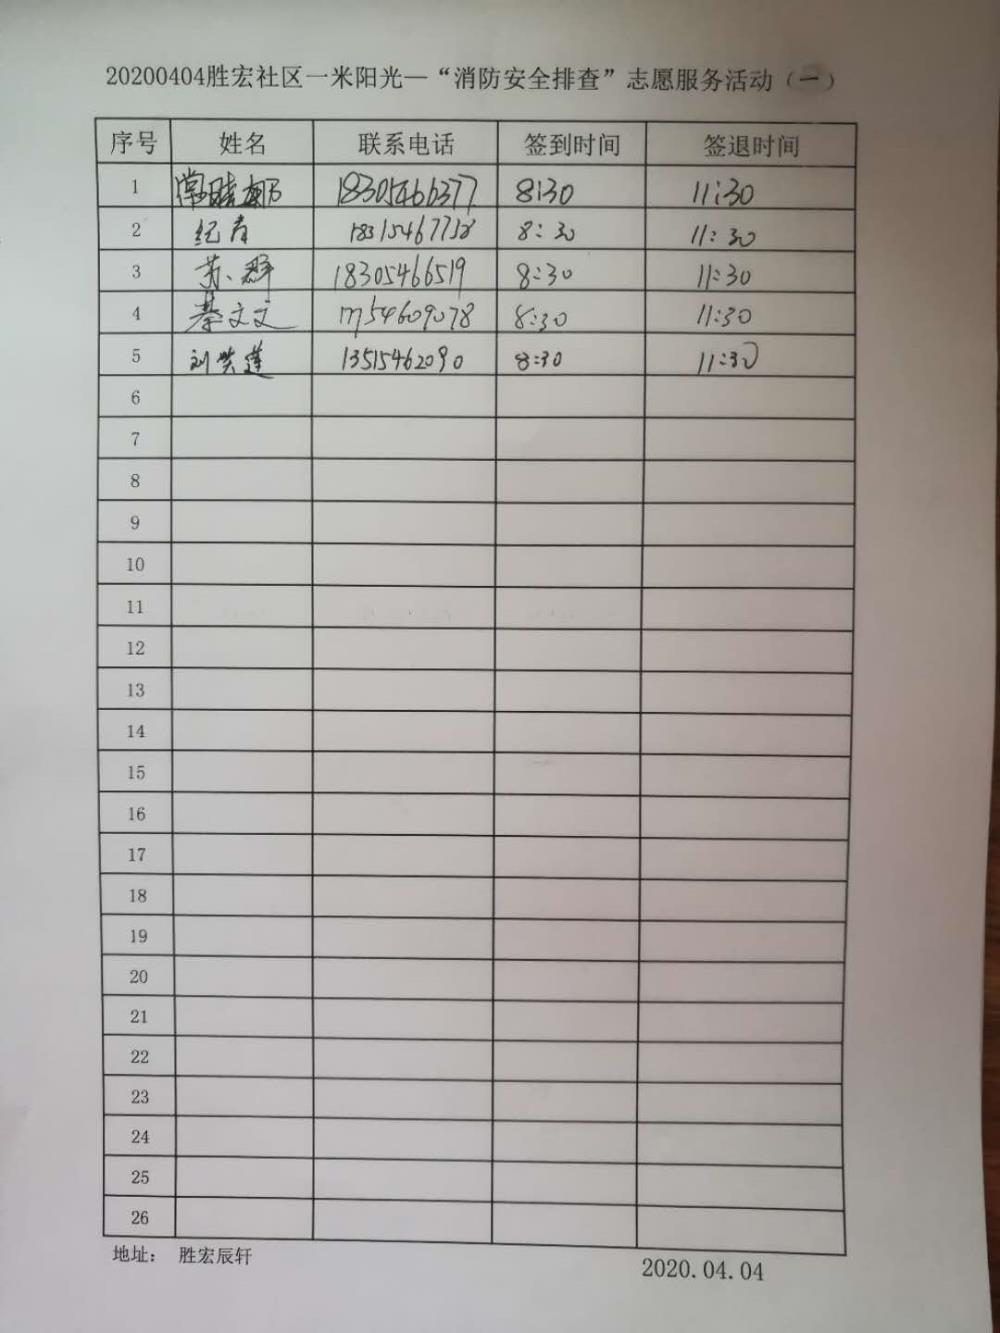 20200404胜宏社区一米阳光—“消防安全排查”志愿服务活动（一）
序号 姓名 联系电话 签到时间 签退时间
1 常晓娜 18305466377 8:30 11:30
2 纪青 18315467758 8:30 11:30
3 苏群 18305466519 8:30 11:30
4 綦文文 17754609078 8:30 11:30
5 刘兴莲 13515462090 8:30 11:30
6
7
8
9
10
11
12
13
14
15
16
17
18
19
20
21
22
23
24
25
26
地址： 胜宏辰轩
2020.04.04